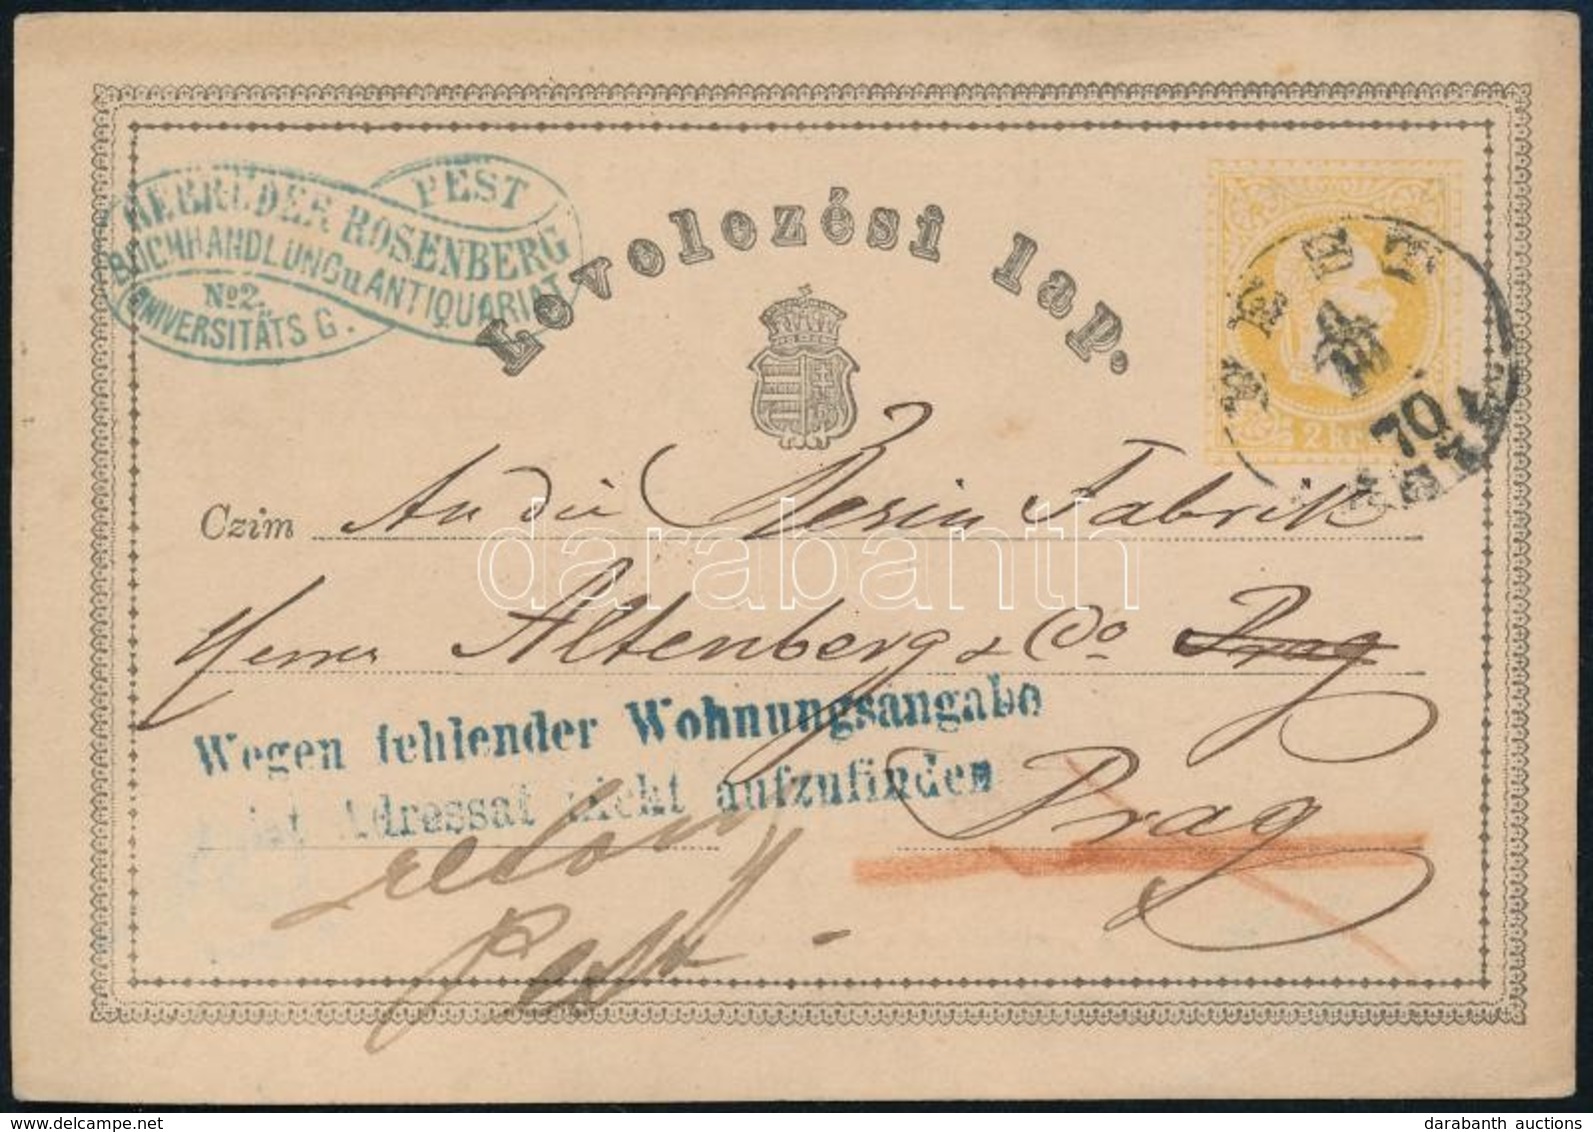 PEST
GEBRÜDER ROSENBERG
BUCHHANDLUNG u ANTIQUARIAT
No 2.
UNIVERSITÄTS G.
Levelezési lap.
2 kr
PEST
70
Czim An die Resin Fabrik
Herren Altenberg & Co Prag
Wegen fehlender Wohnungsangabe
ist Adressat nicht aufzufinden
Prag
retour
Pest
darabanth
darabanth auctions